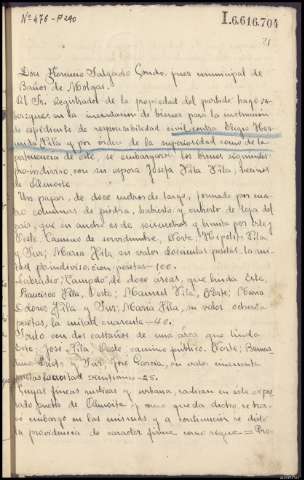 Nº 476 - P 290
I.6.616.704
Don Florencio Salgado Conde, juez municipal de
Baños de Molgas.
Al Sr. Registrador de la propiedad del partido hago sa-
ber: que en la incoación de bienes para la instrucción
de expediente de responsabilidad civil contra Eligio
Vila y por orden de la superioridad como de la
pertenencia de este, se embargaron los bienes siguientes
proindiviso, con su esposa Josefa Vila Vila, vecinos
de Almoite.
Un pajar, de doce metros de largo, formado por cua-
tro columnas de piedra, barrotes y cubierto de teja del
país, que en ancho es de seis metros y limita por Este y
Oeste, Camino de servidumbre, Norte, Hipólito Vila
y Sur, María Vila, su valor doscientas pesetas, la mi-
tad proindiviso, cien pesetas = 100.
Labradío: Campo, de doce áreas, que linda Este,
Francisco Vila, Norte; Manuel Vila, Oeste;
Vila y Sur; María Vila, su valor ochenta
pesetas, la mitad cuarenta = 40.
Prado con dos castaños de una área que linda
Este, José Vila; Oeste, camino público, Norte;
y Sur, José García, su valor cincuenta
pesetas la mitad veinticinco = 25.
Cuyas fincas rústicas y urbana, radican en este expre-
sado pueblo de Almoite y
embargo en las mismas, y a continuación se dictó
la providencia de carácter firme como sigue = Pro-